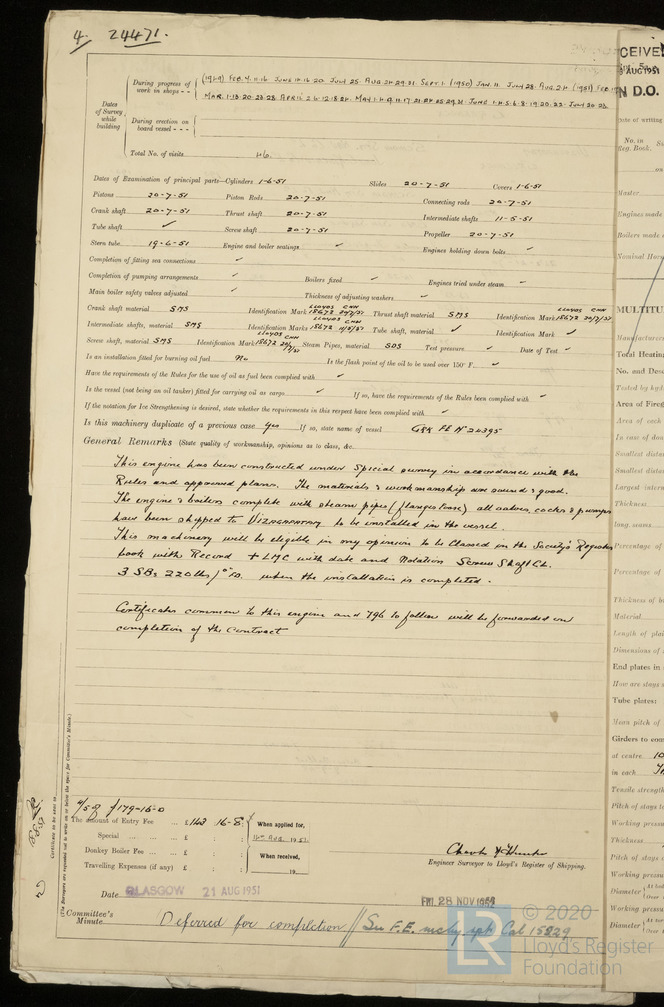 4. 24471.
During progress of work in shops - - (1949) FEB. 4. 11. 16 JUNE 14. 16. 20. JULY 25. AUG. 24. 29. 31. SEPT. 1. (1950) JAN. 11. JULY 28. AUG. 24. (1951) FEB.
MAR. 1. 13. 20. 23. 28. APRIL 2. 6. 12. 18. 24. MAY 1. 4. 9. 11. 17. 21. 24. 25. 29. 31. JUNE 1. 4. 5. 6. 8. 19. 20. 22. JULY 20. 23.
Dates of Survey while building
During erection on board vessel - - -
Total No. of visits 46.
Dates of Examination of principal parts—Cylinders 1-6-51 Slides 20-7-51 Covers 1-6-51
Pistons 20-7-51 Piston Rods 20-7-51 Connecting rods 20-7-51
Crank shaft 20-7-51 Thrust shaft 20-7-51 Intermediate shafts 11-5-51
Tube shaft ✓ Screw shaft 20-7-51 Propeller 20-7-51
Stern tube 19-6-51 Engine and boiler seatings ✓ Engines holding down bolts ✓
Completion of fitting sea connections ✓
Completion of pumping arrangements ✓ Boilers fixed ✓ Engines tried under steam ✓
Main boiler safety valves adjusted ✓ Thickness of adjusting washers ✓
Crank shaft material SMS Identification Mark LLOYDS CHH 18672 Thrust shaft material SMS Identification Mark LLOYDS CHH 18672
Intermediate shafts, material SMS Identification Marks LLOYDS CHH 18672 Tube shaft, material ✓ Identification Mark ✓
Screw shaft, material SMS Identification Mark LLOYDS CHH 18672 Steam Pipes, material SDS Test pressure ✓ Date of Test ✓
Is an installation fitted for burning oil fuel No Is the flash point of the oil to be used over 150° F. ✓
Have the requirements of the Rules for the use of oil as fuel been complied with ✓
Is the vessel (not being an oil tanker) fitted for carrying oil as cargo ✓ If so, have the requirements of the Rules been complied with ✓
If the notation for Ice Strengthening is desired, state whether the requirements in this respect have been complied with ✓
Is this machinery duplicate of a previous case Yes If so, state name of vessel GSK FE No 24395
General Remarks (State quality of workmanship, opinions as to class, &c.
This engine has been constructed under Special survey in accordance with the
Rules and approved plans. The materials & workmanship are sound & good.
The engine & boilers complete with steam pipes (flanges loose) all valves, cocks & pumps
have been shipped to VIZAGAPATAM to be installed in the vessel.
This machinery will be eligible in my opinion to be Classed in the Society's Register
book with Record + LMC with date and Notation Screw Shaft CL.
3 SBs 220 lbs/□" FD. when the installation is completed.
Certificates common to this engine and 796 to follow will be forwarded on
completion of the Contract
(The Surveyors are requested not to write on or below the space for Committee's Minute.)
Certificate to be sent to
£179-16-0
The amount of Entry Fee ... £143 : 16-8 :
Special ... ... ... £ : :
Donkey Boiler Fee ... £ : :
Travelling Expenses (if any) £ : :
When applied for,
AUG 1951
When received,
19
Engineer Surveyor to Lloyd's Register of Shipping.
Date GLASGOW 21 AUG 1951
FRI. 28 NOV 1952
Committee's Minute Deferred for completion // See F.E. mchy rpt Cal 15829
© 2020
LR Lloyd's Register
Foundation
CEIVE
AUG 1951
N D.O.
Date of writing
No. in
Reg. Book.
on
Master
Engines made
Boilers made
Nominal Hors
MULTITU
Manufacturers
Total Heating
No. and Des
Tested by hyd
Area of Fireg
Area of each
In case of don
Smallest distan
Smallest distan
Largest intern
Thickness
long. seams
Percentage of
Percentage of
Thickness of b
Material
Length of plai
Dimensions of
End plates in
How are stays s
Tube plates:
Mean pitch of
Girders to com
at centre 10
in each
Tensile strength
Pitch of stays to
Working pressu
Thickness
Pitch of stays
Working pressu
Diameter At bod Over
Working pressu
Diameter At tur Over